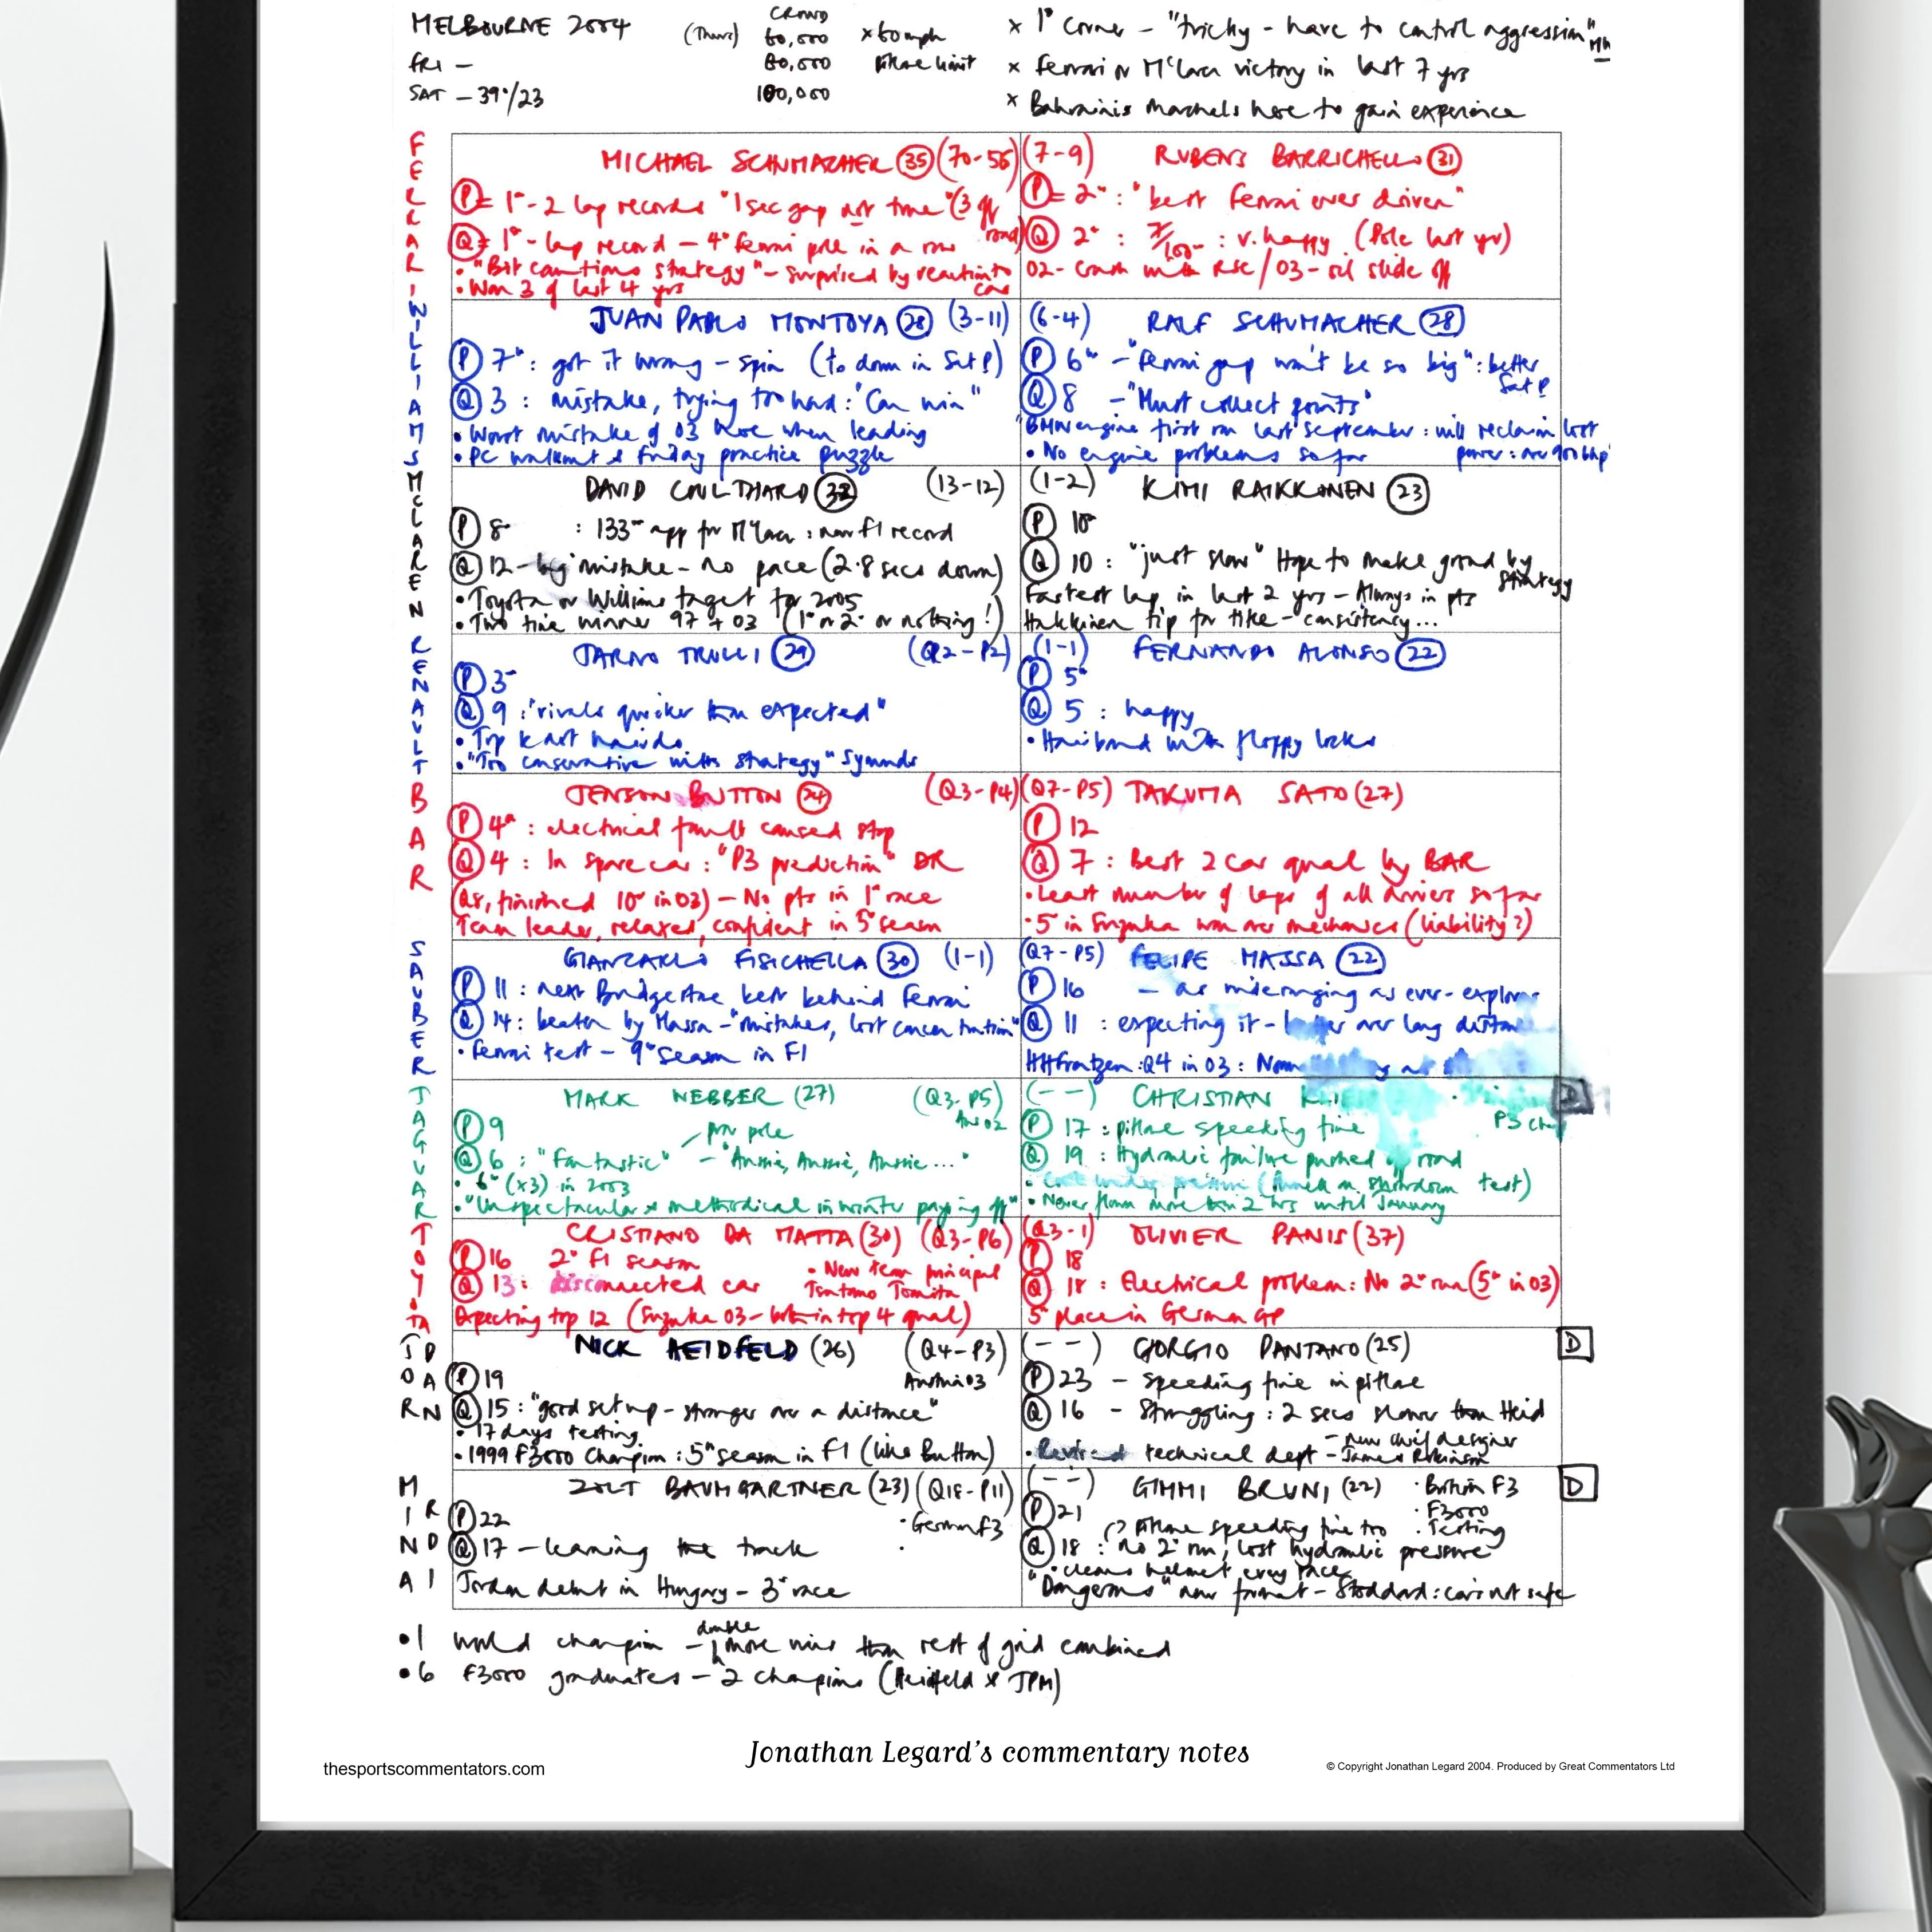 MELBOURNE 2004 (Thurs) CROWD 60,000 x 60mph
FRI - 80,000 Pitlane limit
SAT - 39°/23 100,000
x 1° Corner - "tricky - have to control aggression" MW
x Ferrari or McLaren victory in last 7 yrs
x Bahrainis Marshals here to gain experience
FERRARI
MICHAEL SCHUMACHER (35) (70-55)
P = 1° - 2 lap records "1 sec gap not true" (3 off road)
Q = 1° - lap record - 4° Ferrari pole in a row
• "Bit cautious strategy" - surprised by reaction to car
• Won 3 of last 4 yrs
(7-9) RUBENS BARRICHELLO (31)
P = 2° : "best Ferrari ever driven"
Q 2° : : v. happy (Pole last yr)
02 - Crash with RSC / 03 - oil slide off
WILLIAMS
JUAN PABLO MONTOYA (28) (3-11)
P 7° : got it wrong - spin (to down in Sat P)
Q 3 : mistake, trying too hard : "Can win"
• Worst mistake of 03 here when leading
• PC walkout & Friday practice puzzle
(6-4) RALF SCHUMACHER (28)
P 6° - "Ferrari gap won't be so big" : better Sat P
Q 8 - "Must collect points"
"BMW engine first run last September : will reclaim lost
• No engine problems so far power : over 900 bhp
MCLAREN
DAVID COULTHARD (32) (13-12)
P 8° : 133rd app for McLaren : new F1 record
Q 12 - big mistake - no pace (2.8 secs down)
• Toyota or Williams target for 2005
• Two time winner 97 + 03 (1° or 2° or nothing!)
(1-2) KIMI RAIKKONEN (23)
P 10
Q 10 : "just slow" Hope to make ground by strategy
Fastest lap in last 2 yrs - Always in pts
Hakkinen tip for title - consistency...
RENAULT
JARNO TRULLI (29) (Q2-P2)
P 3°
Q 9 : "rivals quicker than expected"
• Top kart hairdo
• "Too conservative with strategy" Symonds
(1-1) FERNANDO ALONSO (22)
P 5°
Q 5 : happy
• Hairband with floppy locks
BAR
JENSON BUTTON (24) (Q3-P4)
P 4° : electrical fault caused stop
Q 4 : In spare car : "P3 prediction" DR
(Q8, finished 10° in 03) - No pts in 1° race
Team leader, relaxed, confident in 5° season
(Q7-P5) TAKUMA SATO (27)
P 12
Q 7 : Best 2 car qual by BAR
• Least number of laps of all drivers so far
• 5° in Suzuka won over mechanics (liability?)
SAUBER
GIANCARLO FISICHELLA (30) (1-1)
P 11 : next Bridgestone best behind Ferrari
Q 14 : beaten by Massa - "mistakes, lost concentration"
• Ferrari test - 9° season in F1
(Q7-P5) FELIPE MASSA (22)
P 16 - as wideranging as ever - explorer
Q 11 : expecting it - better over long distance
HHFrentzen : Q4 in 03 :
JAGUAR
MARK WEBBER (27) (Q3-P5) Aus 02
P 9
Q 6 : "Fantastic" - "Aussie, Aussie, Aussie..."
• 6° (x3) in 2003
• "Unspectacular & methodical in winter paying off"
(--) CHRISTIAN KLIEN
P 17 : pitlane speeding fine
Q 19 : Hydraulic failure pushed off road
• (Annick on shakedown test)
• Never flown more than 2 hrs until January
TOYOTA
CRISTIANO DA MATTA (30) (Q3-P6)
P 16 2° F1 season • New team principal
Q 13 : disconnected car Tsutomo Tomita
Expecting top 12 (Suzuka 03 - both in top 4 qual)
(Q3-1) OLIVIER PANIS (37)
P 18
Q 18 : Electrical problem : No 2° run (5° in 03)
5° place in German GP
JORDAN
NICK HEIDFELD (26) (Q4-P3) Austria 03
P 19
Q 15 : "good set up - stronger over a distance"
• 17 days testing
• 1999 F3000 Champion : 5° season in F1 (like Button)
(--) GIORGIO PANTANO (25) D
P 23 - speeding fine in pitlane
Q 16 - Struggling : 2 secs slower than Heid
• Revised technical dept - new chief designer - James Robinson
MINARDI
ZOLT BAUMGARTNER (23) (Q18-P11)
P 22 • German F3
Q 17 - learning the track
Jordan debut in Hungary - 3° race
(--) GIMMI BRUNI (22) • British F3 D
P 21 • F3000
Pitlane speeding fine too • Testing
Q 18 : no 2° run, lost hydraulic pressure
• cleans helmet every race
"Dangerous" new format - Stoddard : cars not safe
• 1 world champion - double more wins than rest of grid combined
• 6 F3000 graduates - 2 champions (Heidfeld & JPM)
Jonathan Legard's commentary notes
thesportscommentators.com
© Copyright Jonathan Legard 2004. Produced by Great Commentators Ltd